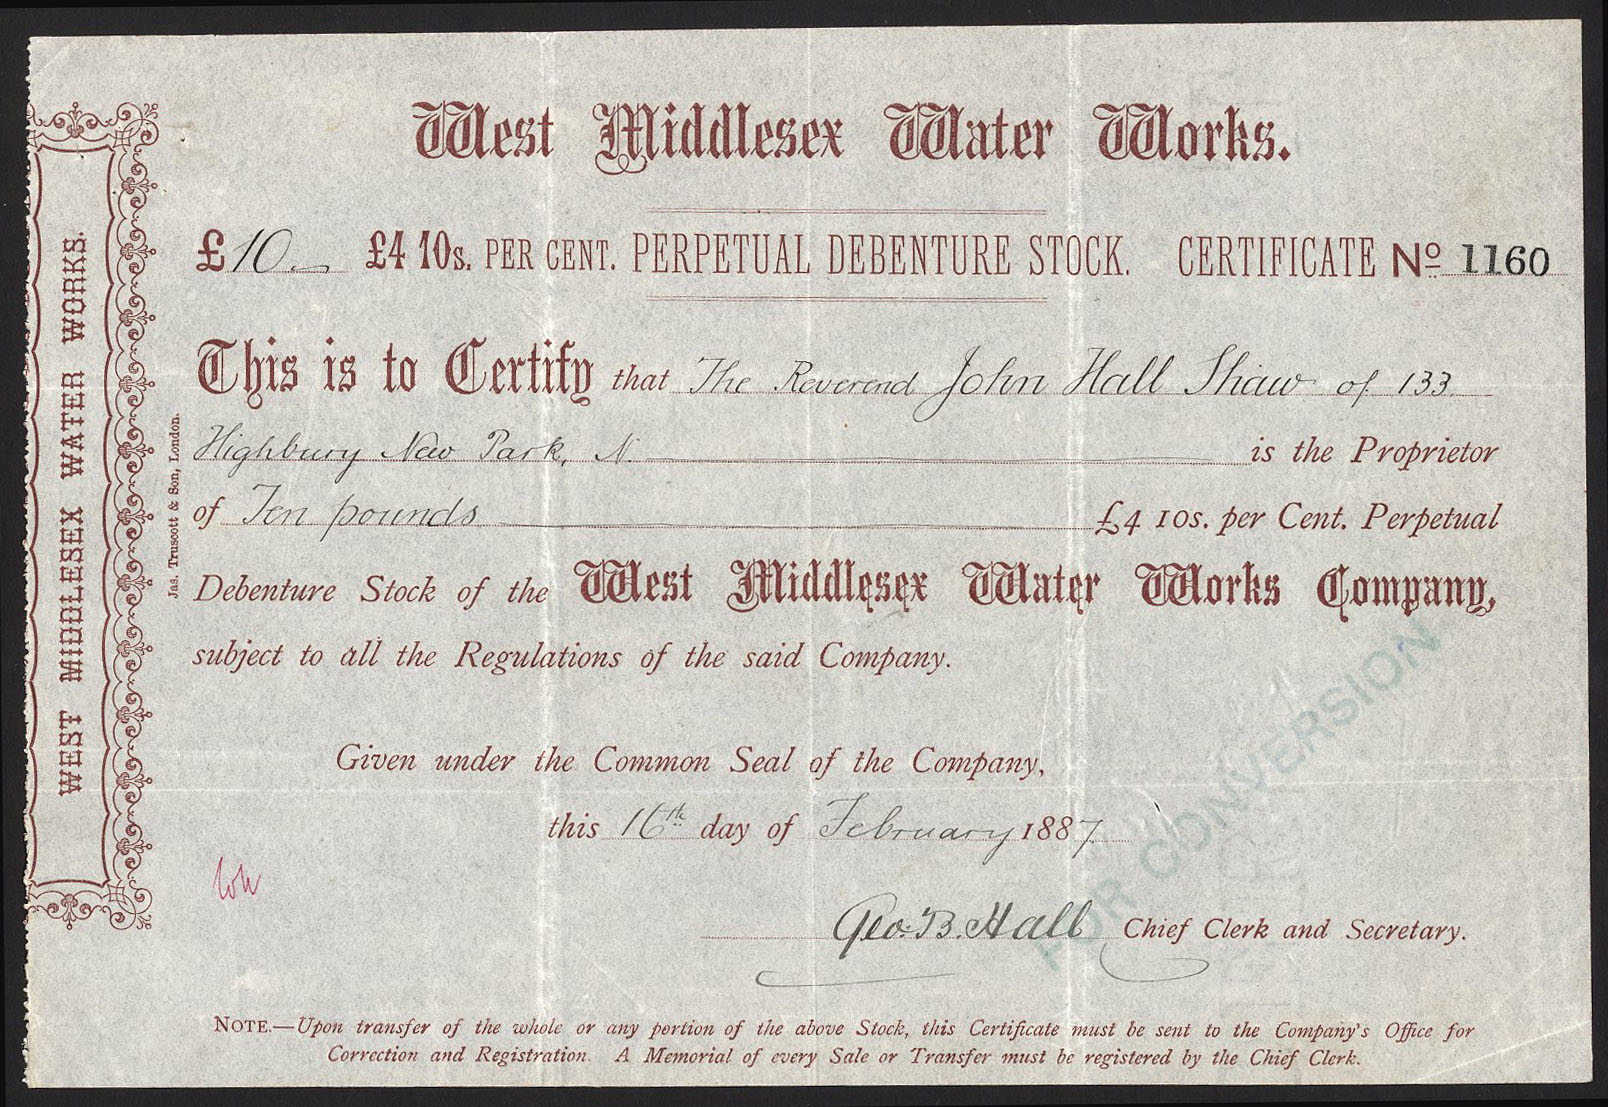 West Middlesex Water Works.
£10.— £4 10s. PER CENT. PERPETUAL DEBENTURE STOCK. CERTIFICATE Nº 1160
This is to Certify that The Reverend John Hall Shaw of 133
Highbury New Park, N. is the Proprietor
of Ten pounds £4 10s. per Cent. Perpetual
Debenture Stock of the West Middlesex Water Works Company,
subject to all the Regulations of the said Company.
Given under the Common Seal of the Company,
this 16th day of February 1887.
Geo. B. Hall Chief Clerk and Secretary.
NOTE.—Upon transfer of the whole or any portion of the above Stock, this Certificate must be sent to the Company's Office for
Correction and Registration. A Memorial of every Sale or Transfer must be registered by the Chief Clerk.
WEST MIDDLESEX WATER WORKS.
Jas. Truscott & Son, London.
FOR CONVERSION